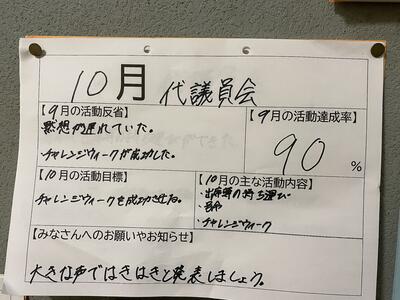 10月 代議員会
【9月の活動反省】
黙想が遅れていた。
チャレンジウィークが成功した。
【9月の活動達成率】
90%
【10月の活動目標】
チャレンジウィークを成功させる。
【10月の主な活動内容】
・出席簿の持ち運び
・号令
・チャレンジウィーク
【みなさんへのお願いやお知らせ】
大きな声ではきはきと発表しましょう。